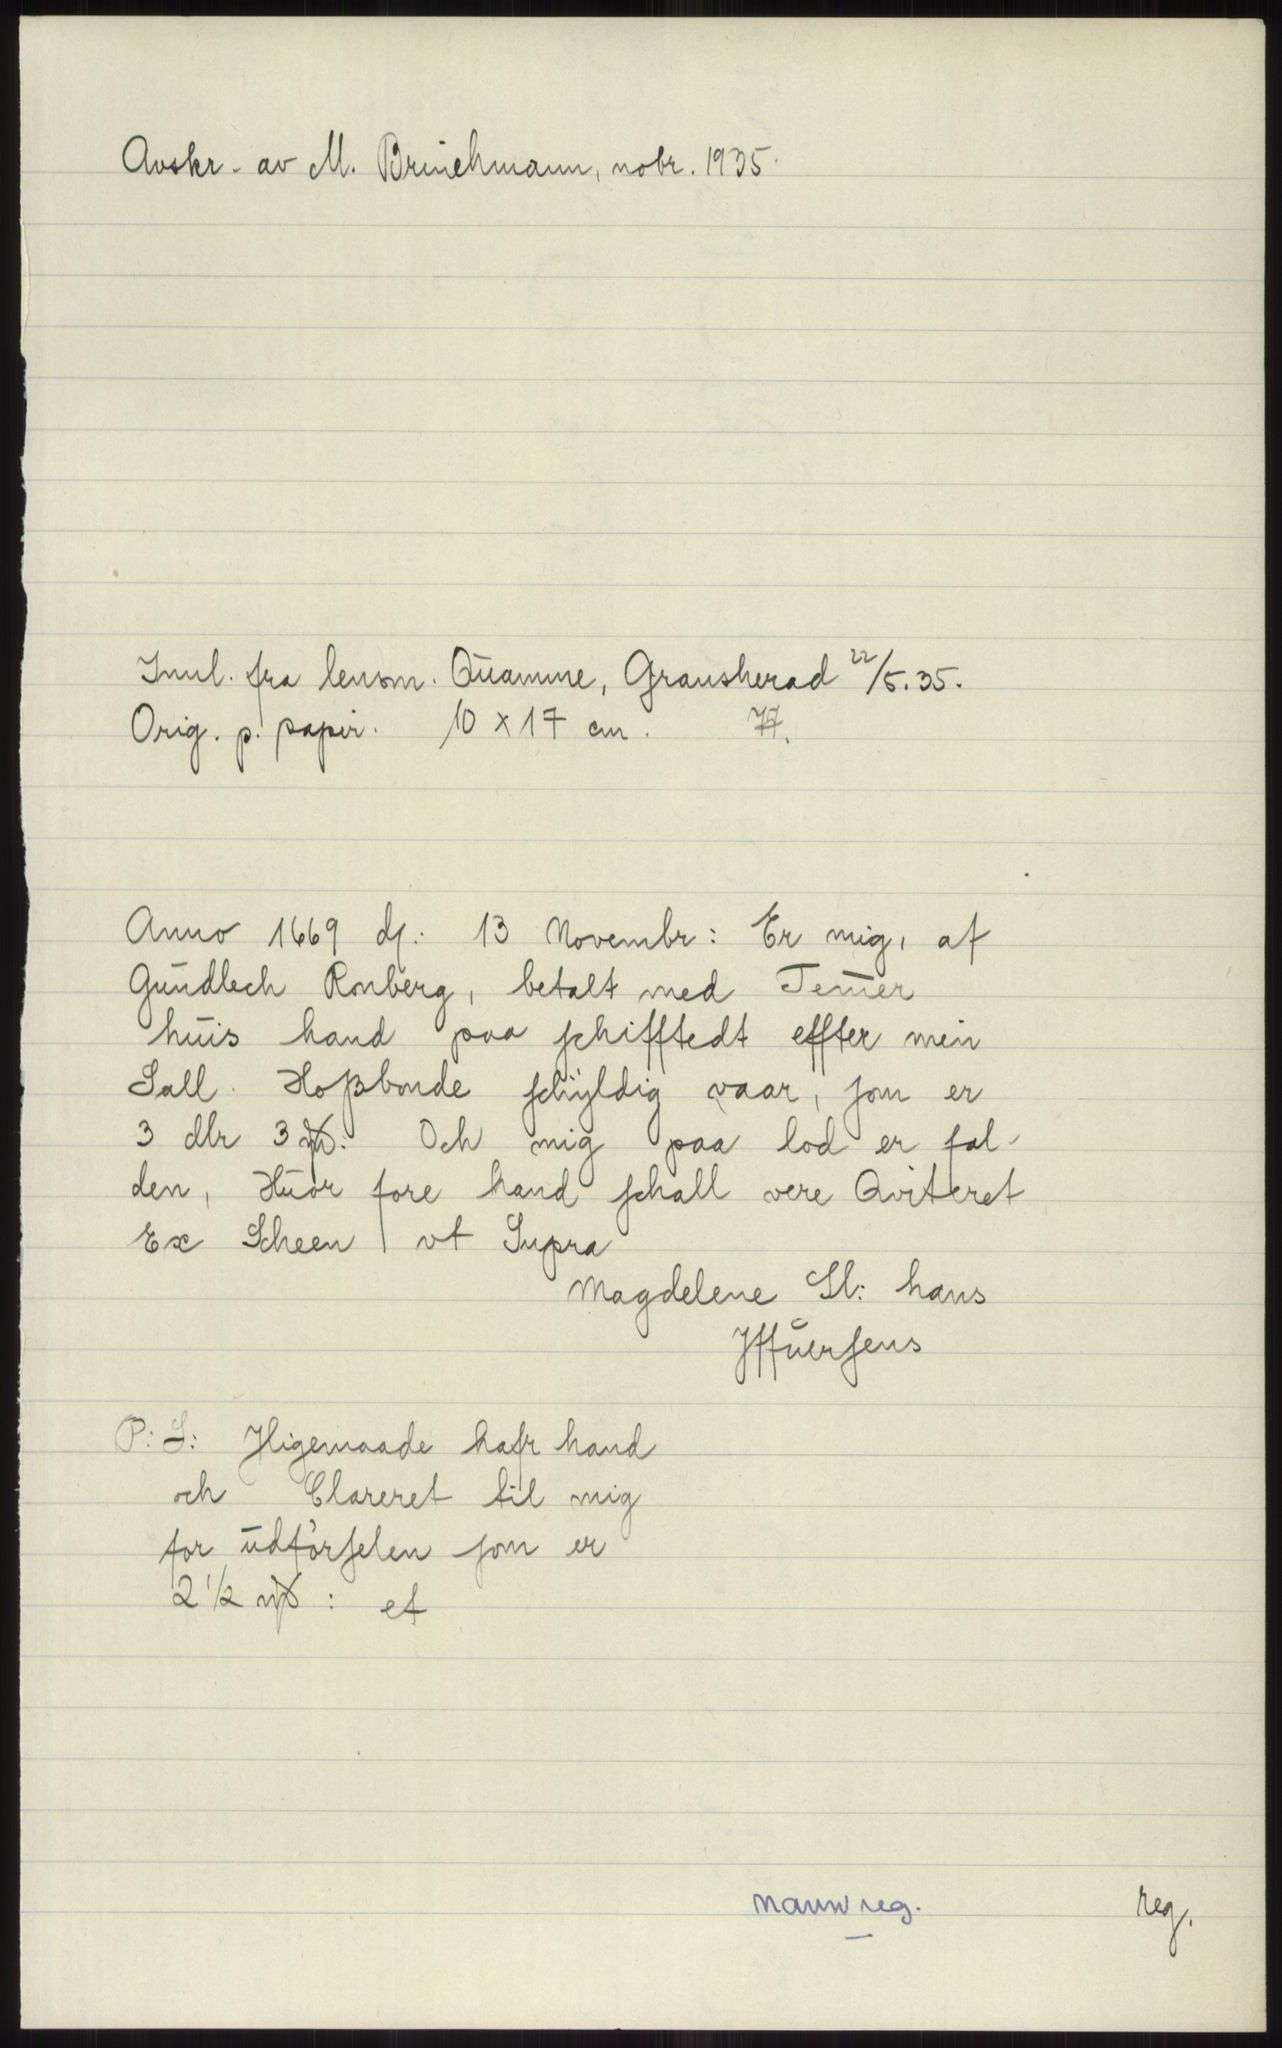 Avskr. av M. Brinchmann, nobr. 1935.
Innl. fra lensm. Qūamme, Gransherad 22/5.35.
Orig. p. papir. 10 x 17 cm. 77.
Anno 1669 dj: 13 Novembr: Er mig, af
Gūndlech Ronberg, betalt med
hūis hand paa schifftedt effter min
Sall. Hoßbonde schÿldig vaar, som er
3 dlr 3 Och mig paa lod er fal-
den, Hūor fore hand schall vere Qviteret
Ex Scheen vt Supra
Magdelene Sl: hans
Iffūersens
P: S: Higemaade hafr hand
och Clareret til mig
for ūdförselen som er
2 1/2 : et
navnreg. reg.